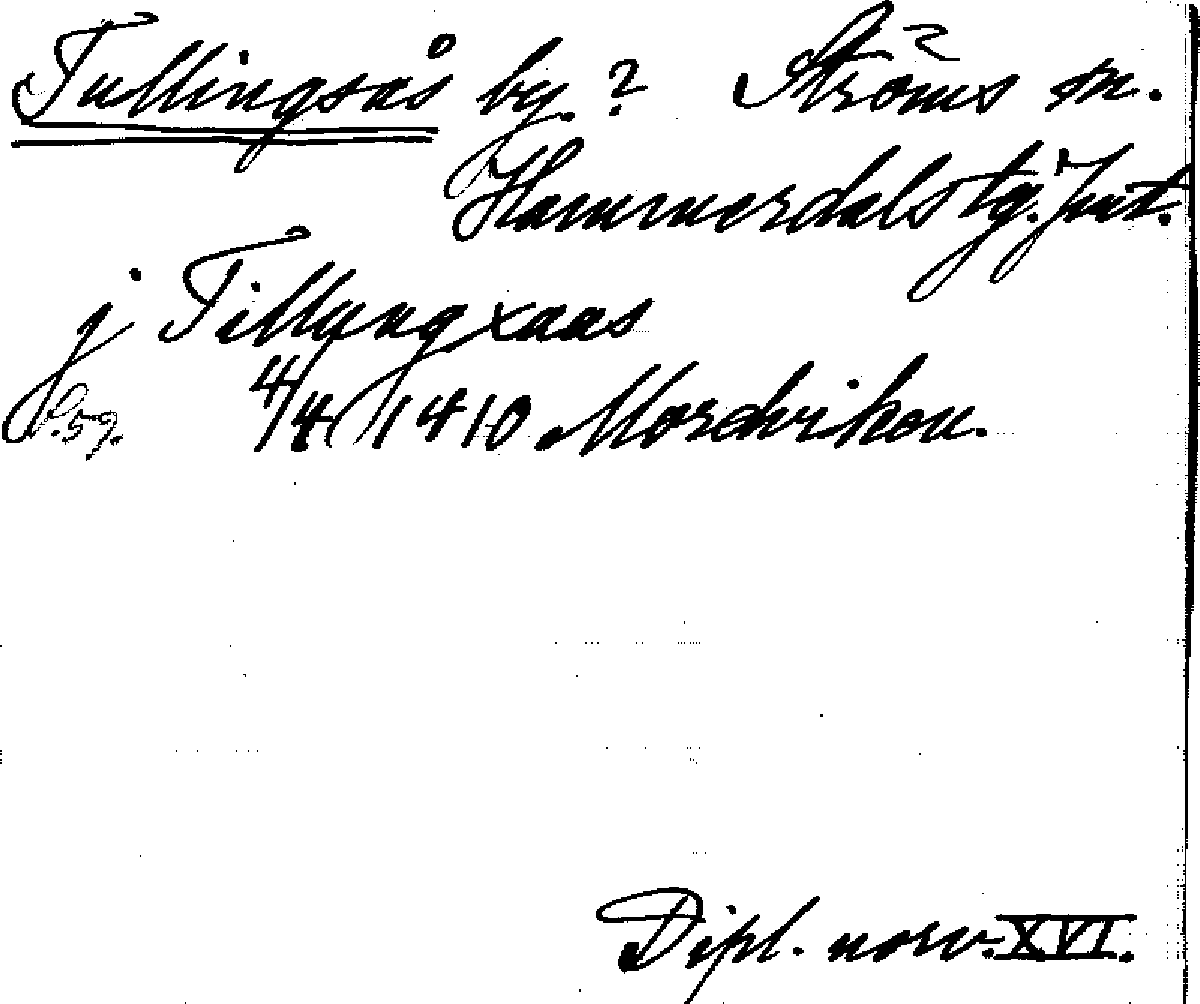 Tullingsås by.? Ströms sn.
Hammerdals tg. Jmt.
j Tillungxaas
S.59. 4/4 1410 Mordviken.
Dipl. norv. XVI.